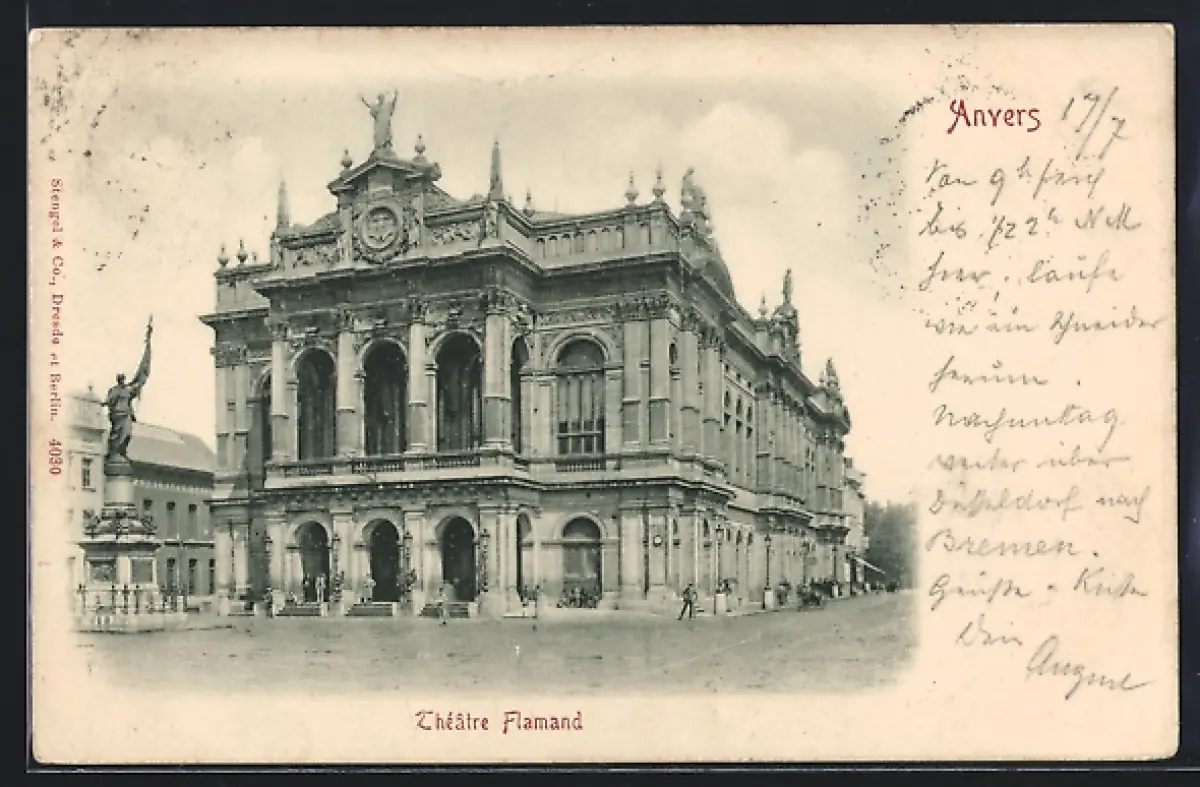 Anvers
17/7
Von 9h früh
bis 1/2 2h NM
hier, laufe
wie ein Schneider
herum.
Nachmittag
weiter über
Düsseldorf nach
Bremen.
Grüsse u. Küsse
Dein
August
Stengel & Co., Dresde et Berlin. 4030
Théâtre Flamand